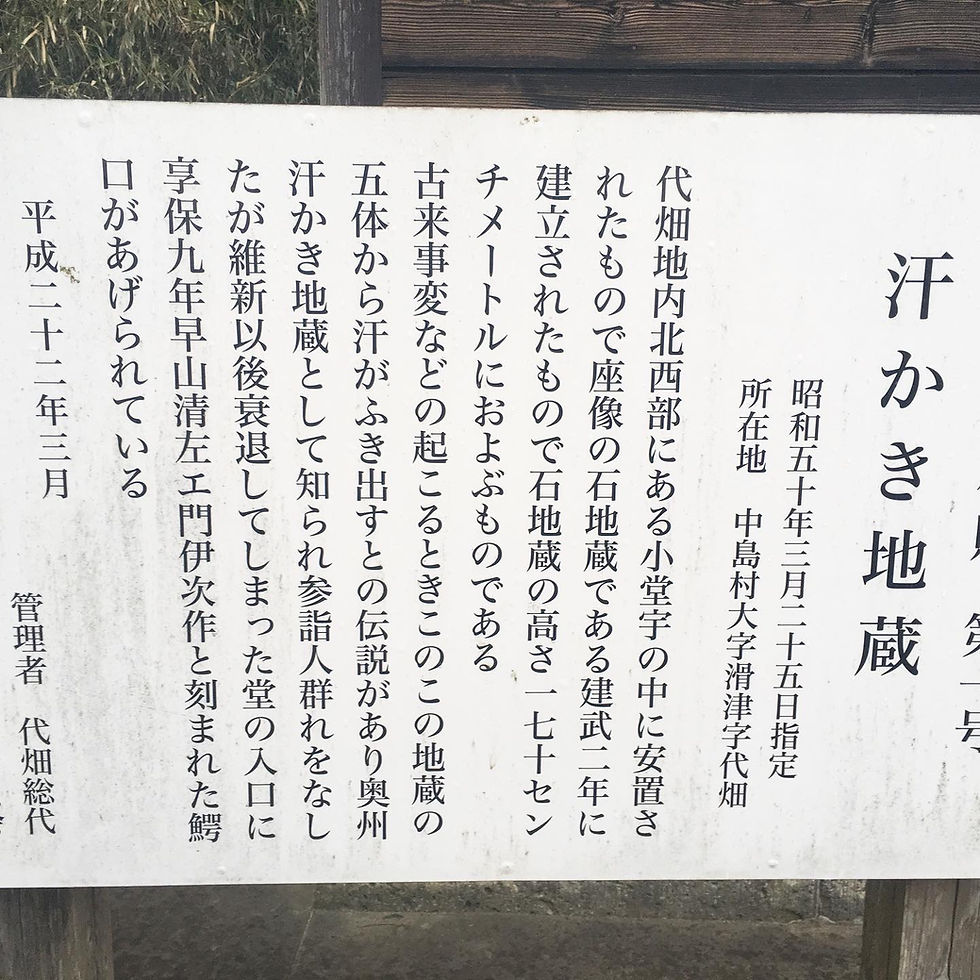 第一号
汗かき地蔵
昭和五十年三月二十五日指定
所在地　中島村大字滑津字代畑
代畑地内北西部にある小堂宇の中に安置さ
れたもので座像の石地蔵である建武二年に
建立されたもので石地蔵の高さ一七十セン
チメートルにおよぶものである
古来事変などの起こるときこのこの地蔵の
五体から汗がふき出すとの伝説があり奥州
汗かき地蔵として知られ参詣人群れをなし
たが維新以後衰退してしまった堂の入口に
享保九年早山清左エ門伊次作と刻まれた鰐
口があげられている
平成二十二年三月
管理者　代畑総代